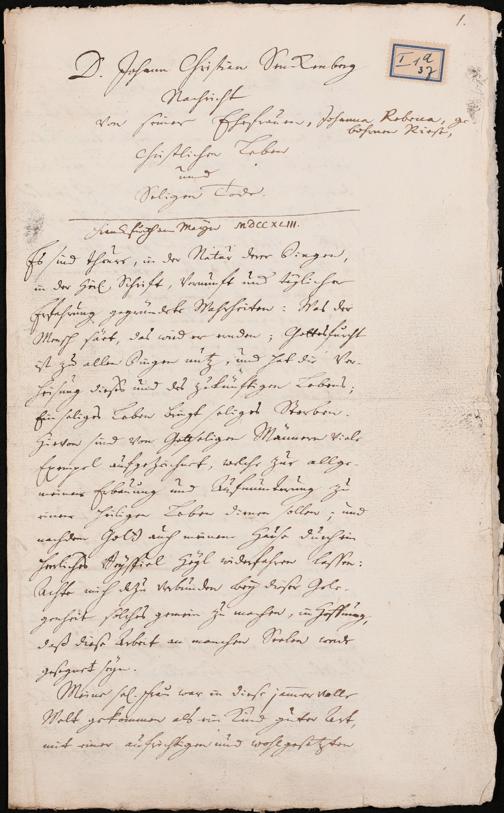 1.
I 1 a
37
D. Johann Christian Senckenberg
Nachricht
von seiner Ehefrauen, Johanna Rebecca, ge-
bohrnen Riese,
Christlichen Leben
und
Seligen Tode.
Franckfurth am Mayn MDCCXLIII.
Es sind theure, in der Natur derer Dingen,
in der Heil. Schrifft, Vernunfft und täglicher
Erfahrung gegründete Wahrheiten: Was der
Mensch säet, das wird er ernden; Gottesfurcht
ist zu allen Dingen nutz, und hat die Ver-
heisung dieses und des zukünfftigen Lebens;
Ein seliges Leben bringt seliges Sterben.
Hievon sind von Gottseligen Männern viele
Exempel aufgezeichnet, welche zur allge-
meinen Erbauung und Aufmunterung zu
einem heiligen Leben dienen sollen; und
nachdem Gott auch meinem Hause durch ein
herrliches Beyspiel Heyl wiederfahren lassen:
Achte mich dazu verbunden bey dieser Gele-
genheit solches gemein zu machen, in Hoffnung,
daß diese Arbeit an manchen Seelen werde
gesegnet seyn.
Meine sel. Frau war in diese jammervolle
Welt gekommen als ein Kind guter Art,
mit einer aufrichtigen und wohlgesetzten